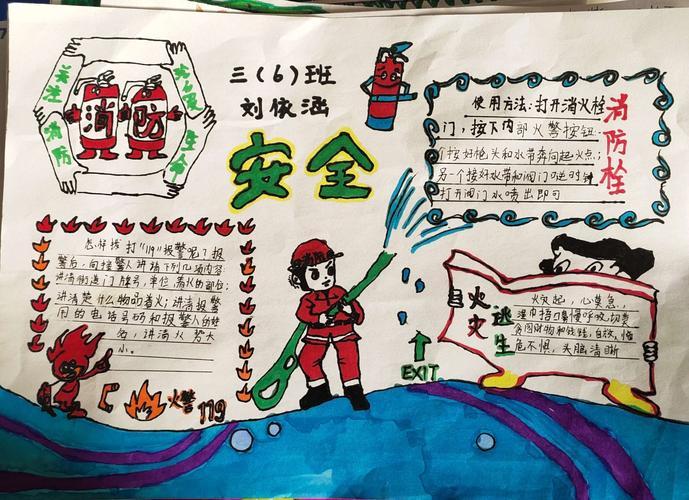 关注消防
珍爱生命
消 防
三(6)班
刘依涵
安全
消防栓
使用方法:打开消火栓
门,按下内部火警按钮
个按好枪头和水带奔向起火点;
另一个接好水带和阀门
打开阀门水喷出即可
怎样拨打"119"报警呢?报
警后,向接警人讲清下列几项内容:
讲清街道门牌号,单位着火的部位;
讲清楚什么物的着火;讲清报警
用的电话号码和报警人的姓
名,讲清火势大
小。
火警 119
EXIT
火灾逃生
火灾起,心莫急,
湿巾捂口鼻慢呼吸,切莫
贪图财物和钱钱,自救,临
危不惧,头脑清晰